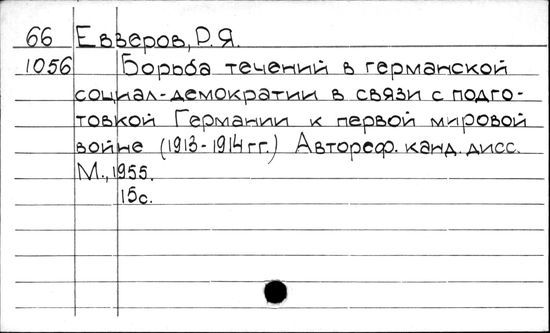 66 Евзеров, Р.Я.
1056 Борьба течений в германской
социал-демократии в связи с подго-
товкой Германии к первой мировой
войне (1913-1914 гг.) Автореф. канд. дисс.
М., 1955.
15с.